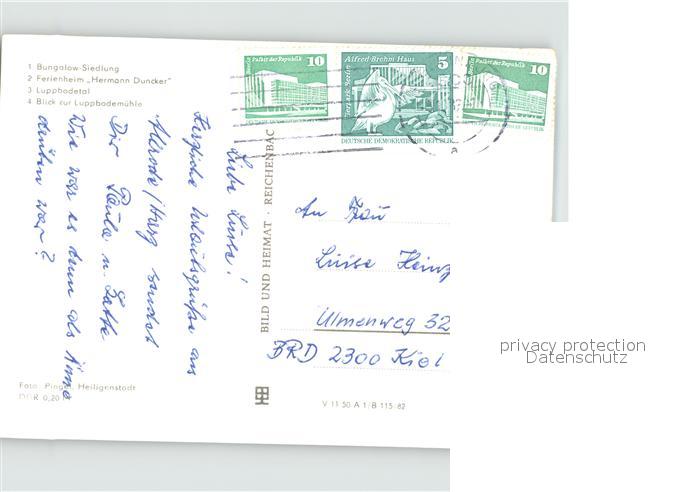 1 Bungalow-Siedlung
2 Ferienheim „Hermann Duncker"
3 Luppbodetal
4 Blick zur Luppbodemühle
Berlin Palast der Republik 10
Alfred-Brehm-Haus 5
Tierpark Berlin
DEUTSCHE DEMOKRATISCHE REPUBLIK
Berlin Palast der Republik 10
Liebe Luise!
Herzliche Urlaubsgrüße aus
Allrode/Harz sendet
Dir Paula u.
Wie war es denn als
drüben war?
BILD UND HEIMAT · REICHENBAC
An Frau
Luise Heinz
Ulmenweg 32
BRD 2300 Kiel
Foto: Pingel, Heiligenstadt
DDR 0,20
V 11 50 A 1/B 115/82
privacy protection
Datenschutz